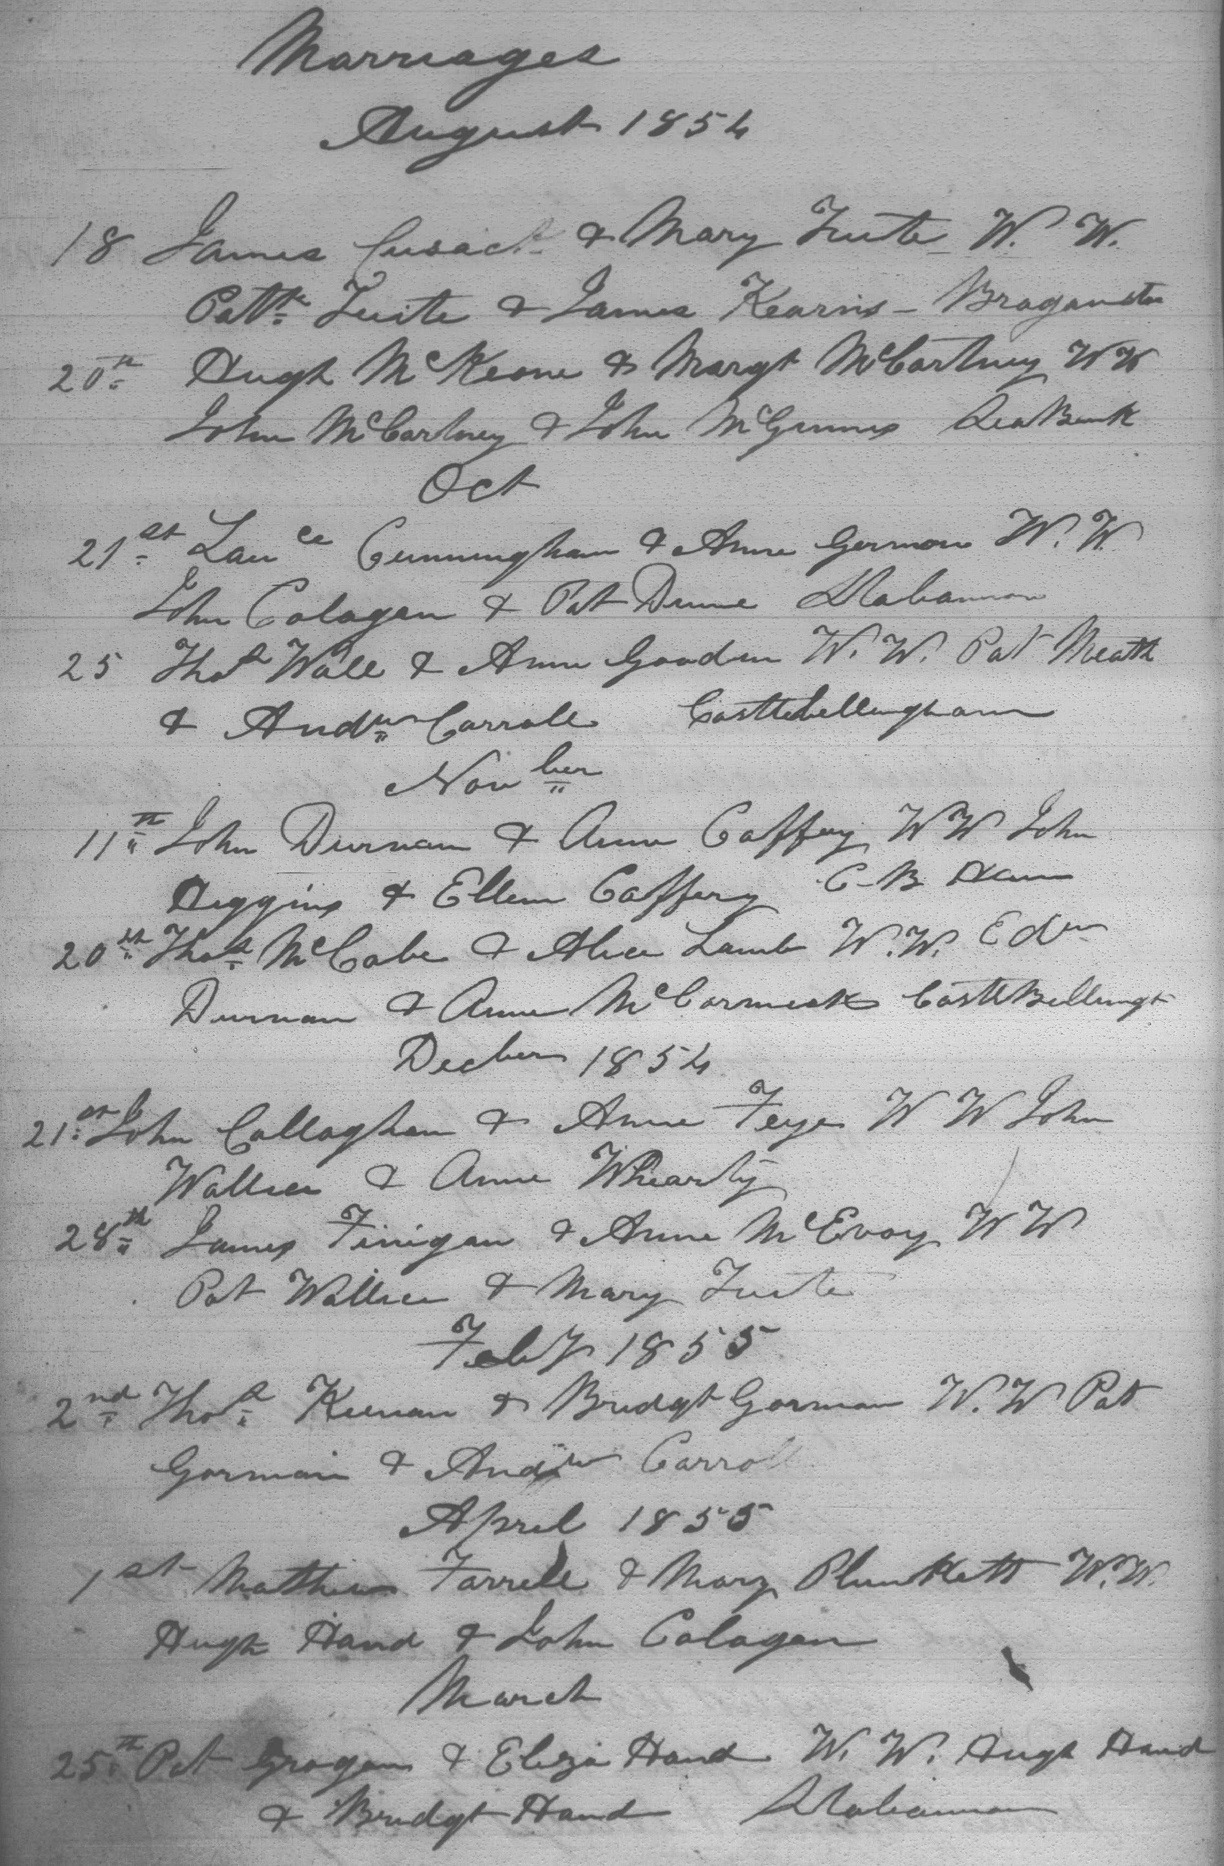 Marriages
August 1854
18 James Cusack & Mary Tuite W. W.
Patk Tuite & James Kearns - Braganstn
20th Hugh McKeone & Margt McCartney W W
John McCartney & John McGinnis SeaBank
Oct
21st Lauce Cunningham & Anne Gorman W. W.
John Colagan & Pat Dunne Stabannon
25 Thos Wall & Anne Gooden W. W. Pat Meath
& Andw Carroll Castlebellingham
Novber
11th John Durnan & Anne Caffery W W John
Higgins & Ellen Caffery C-B Ham
20th Thos McCabe & Alice Lamb W. W. Edm
Durnan & Anne McCormick CastlBellingt
Decber 1854
21st John Callaghan & Anne Feye W W John
Wallice & Anne Whearty
28th James Finigan & Anne McEvoy W W
Pat Wallice & Mary Tuite
Feby 1855
2nd Thos Keenan & Bridgt Gorman W. W Pat
Gorman & Andw Carroll
April 1855
1st Mathew Farrell & Mary Plunkett W. W.
Hugh Hand & John Colagan
March
25th Pat Grogan & Eliza Hand W. W. Hugh Hand
& Bridgt Hand Stabannon